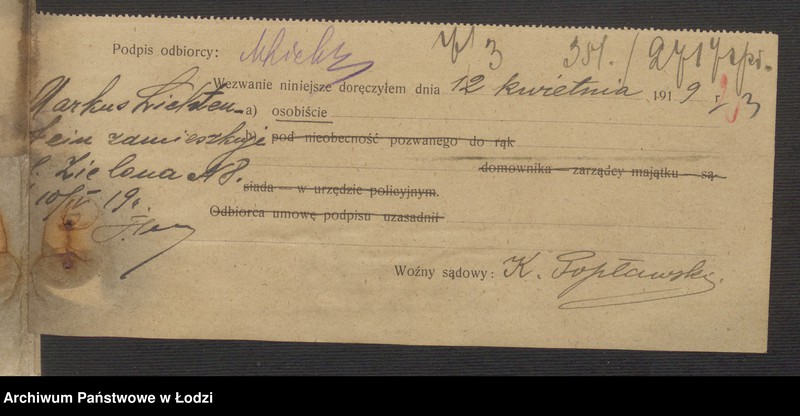 Podpis odbiorcy:
3 351. / 271
Wezwanie niniejsze doręczyłem dnia 12 kwietnia 1919 r.
a) osobiście
b) pod nieobecność pozwanego do rąk
domownika — zarządcy majątku — są-
siada — w urzędzie policyjnym.
Odbiorca umowę podpisu uzasadnił
Woźny sądowy: K. Popławski
Markus Lichten-
stein zamieszkuje
ul. Zielona № 8.
10/IV 19.
Archiwum Państwowe w Łodzi